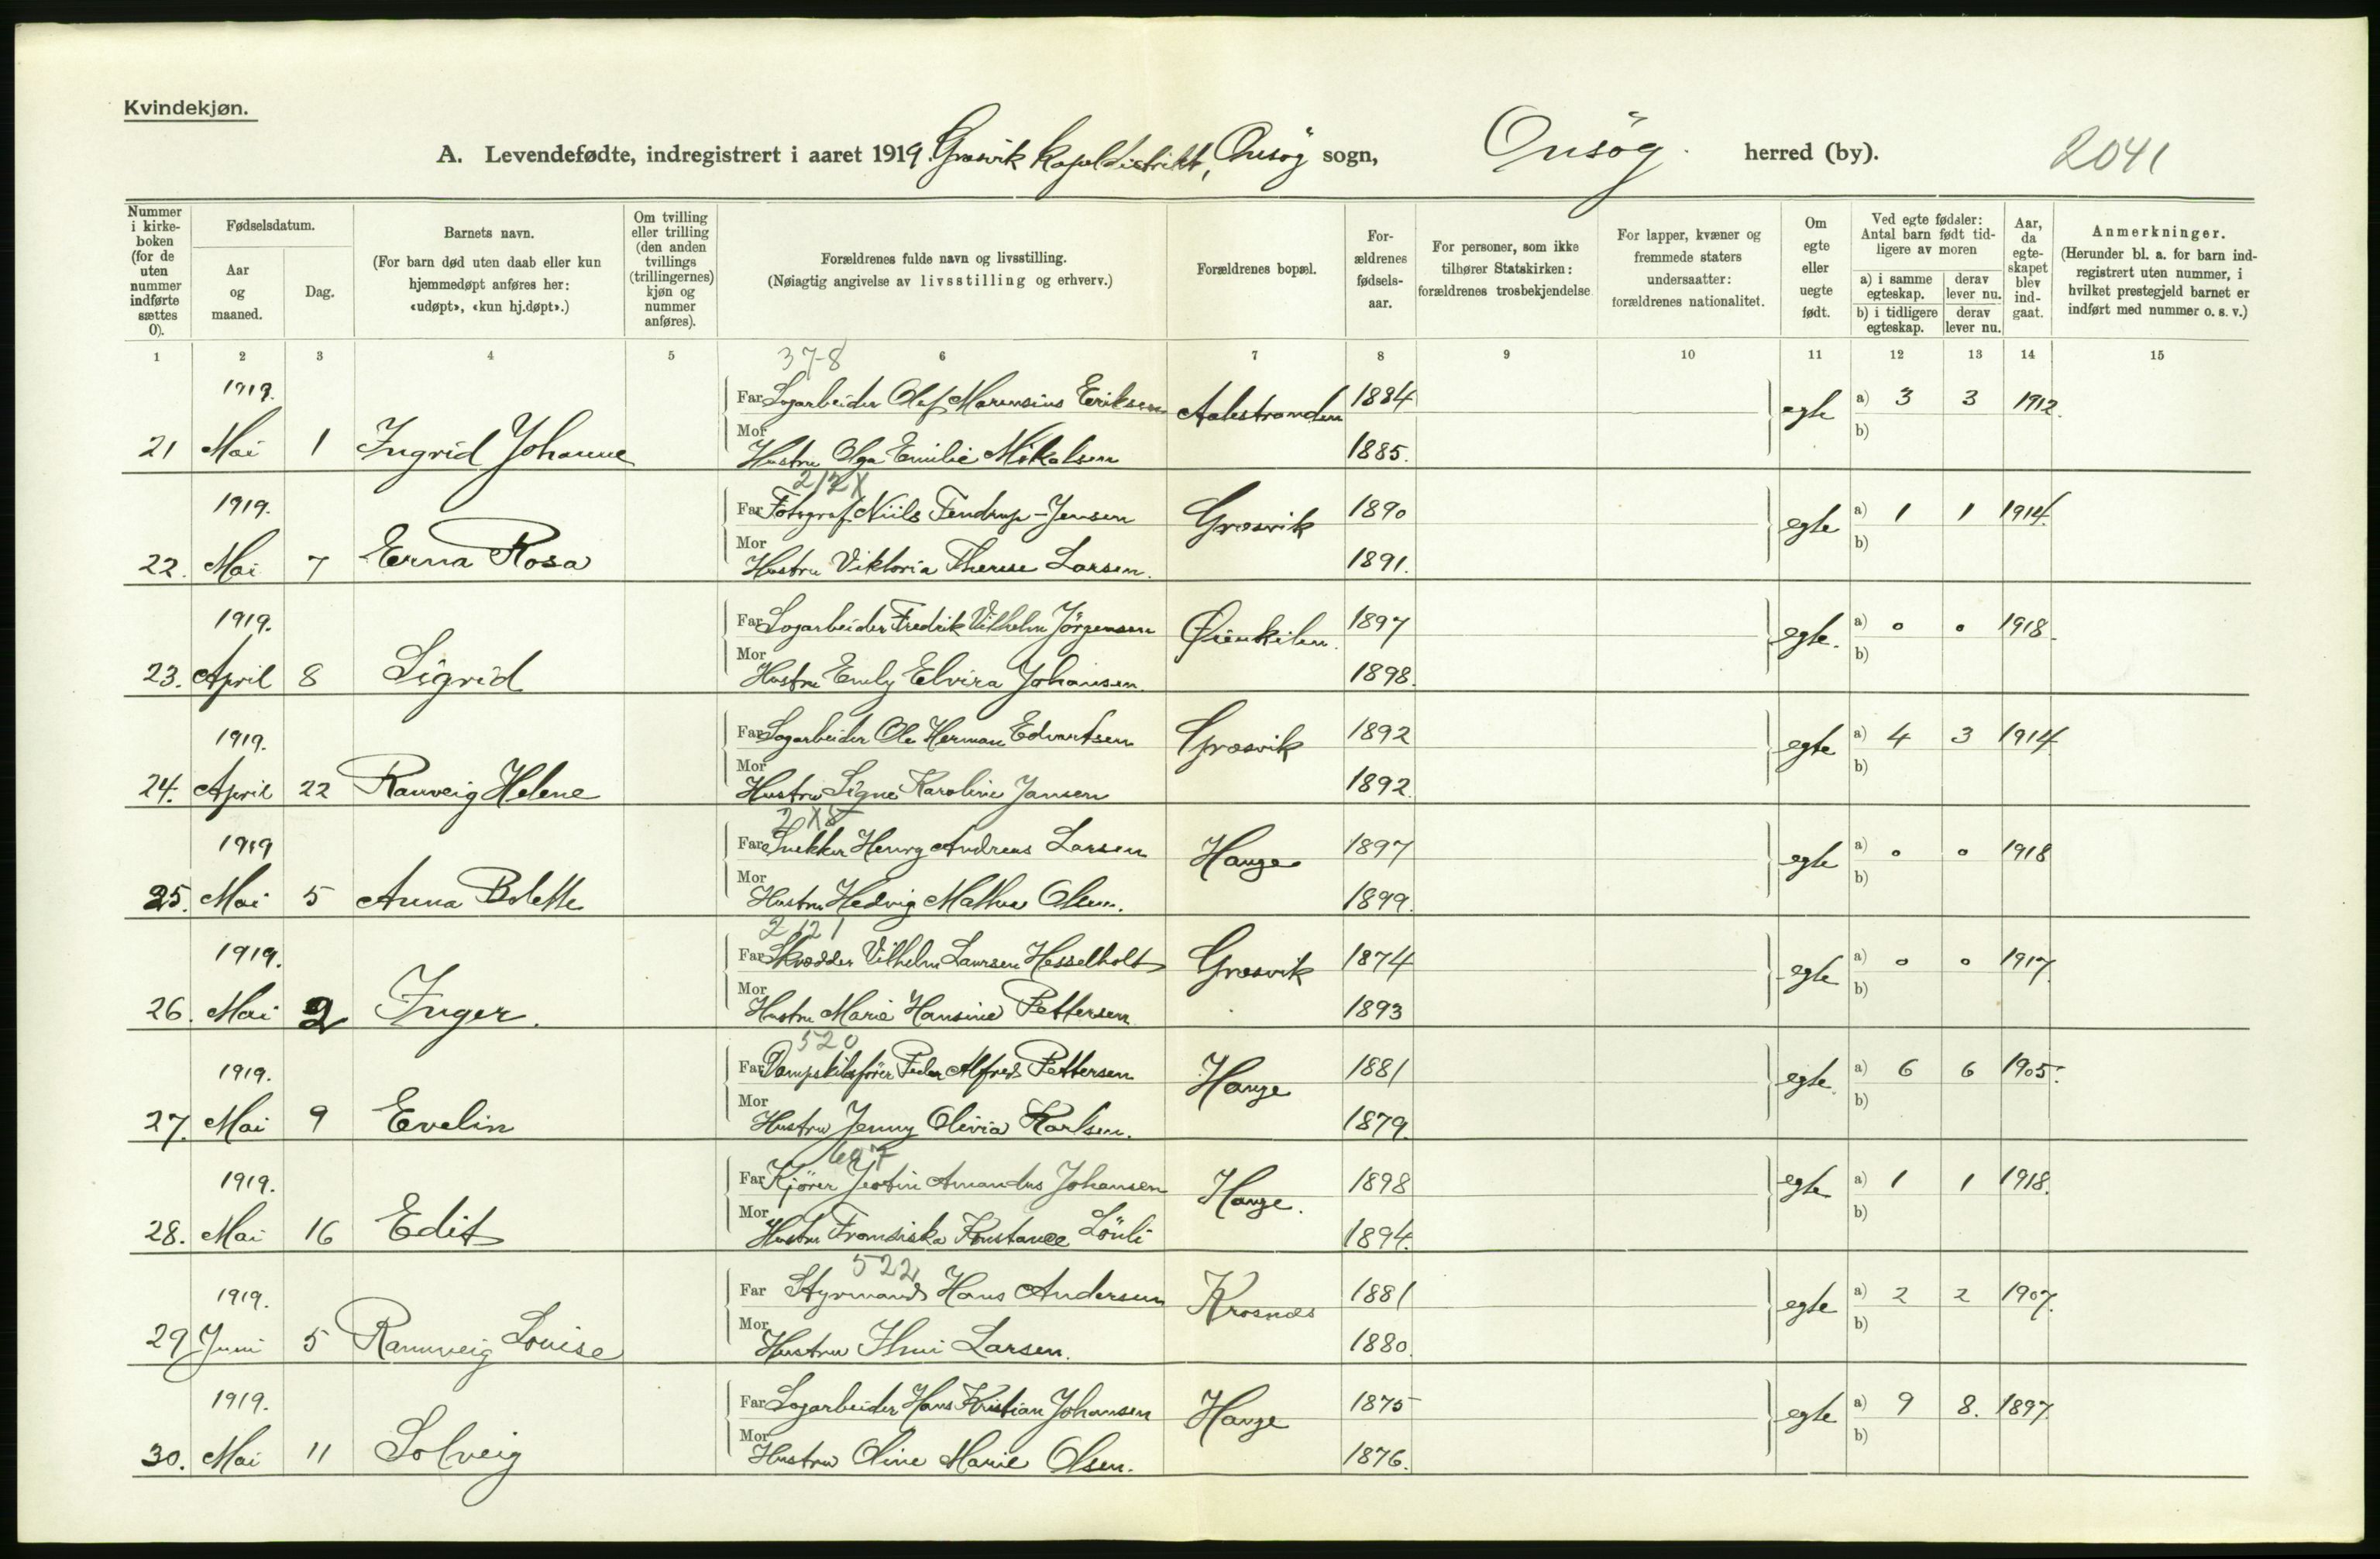 Kvindekjøn.
A. Levendefødte, indregistrert i aaret 1919. Græsvik kapeldistrikt, Onsöy sogn, Onsöy herred (by). 2041
Nummer i kirkeboken (for de uten nummer indførte sættes 0).
Fødselsdatum.
Aar og maaned.
Dag.
Barnets navn.
(For barn død uten daab eller kun hjemmedøpt anføres her: «udøpt», «kun hj.døpt».)
Om tvilling eller trilling (den anden tvillings (trillingernes) kjøn og nummer anføres).
Forældrenes fulde navn og livsstilling.
(Nøiagtig angivelse av livsstilling og erhverv.)
Forældrenes bopæl.
Forældrenes fødselsaar.
For personer, som ikke tilhører Statskirken: forældrenes trosbekjendelse
For lapper, kvæner og fremmede staters undersaatter: forældrenes nationalitet.
Om egte eller uegte født.
Ved egte fødsler: Antal barn født tidligere av moren
a) i samme egteskap.
derav lever nu.
b) i tidligere egteskap.
derav lever nu.
Aar, da egteskapet blev indgaat.
Anmerkninger.
(Herunder bl. a. for barn indregistrert uten nummer, i hvilket prestegjeld barnet er indført med nummer o. s. v.)
1 2 3 4 5 6 7 8 9 10 11 12 13 14 15
37-8
1919. Far Sagarbeider Olef Marensius Eriksen Aalestranden 1884 egte a) 3 3 1912.
21 Mai 1 Ingrid Johanne Mor Hustru Olga Emilie Mikalsen 1885. b)
212 X
1919. Far Fotograf Niils Tendrup-Jensen Græsvik 1890 egte a) 1 1 1914.
22. Mai 7 Erna Rosa Mor Hustru Viktoria Therese Larsen. 1891. b)
1919. Far Sagarbeider Fredrik Vilhelm Jörgensen Øienkilen. 1897 egte. a) 0 0 1918.
23. April 8 Sigrid Mor Hustru Emily Elvira Johansen. 1898. b)
1919. Far Sagarbeider Ole Herman Edvartsen Græsvik 1892 egte a) 4 3 1914
24. April 22 Ranveig Helene Mor Hustru Signe Karoline Jansen 1892. b)
1919 Far Snekker Henry Andreas Larsen Hauge 1897 egte a) 0 0 1918
25. Mai 5 Anna Bolette Mor Hustru Hedvig Mathea Olsen. 1899. b)
2121
1919. Far Skrædder Vilhelm Laursen Hesselholt Græsvik 1874 egte a) 0 0 1917.
26. Mai 2 Inger. Mor Hustru Marie Hansine Pettersen 1893 b)
520
1919. Far Dampskibsfører Peder Alfred Pettersen Hauge 1881 egte. a) 6 6 1905.
27. Mai 9 Evelin Mor Hustru Jenny Olivia Karlsen. 1879. b)
1919. Far Kjører Jostin Amandus Johansen Hauge. 1898 egte a) 1 1 1918.
28. Mai 16 Edit Mor Hustru Fransiska Konstance Lönli 1894. b)
522
1919. Far Styrmand Hans Andersen Krosnæs 1881 egte a) 2 2 1907.
29 Juni 5 Rannveig Louise Mor Hustru Larsen. 1880. b)
1919. Far Sagarbeider Hans Kristian Johansen Hauge 1875 egte a) 9 8. 1897.
30. Mai 11 Solveig Mor Hustru Oline Marie Olsen. 1876. b)